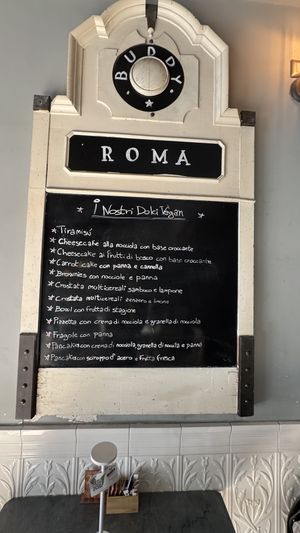 BUDDY
ROMA
I Nostri Dolci Vegan
* Tiramisù
* Cheesecake alla nocciola con base croccante
* Cheesecake ai frutti di bosco con base croccante
* Carrot cake con panna e cannella
* Brownies con nocciole e panna
* Crostata multicereali sambuco e lampone
* Crostata multicereali zenzero e limone
* Bowl con frutta di stagione
* Pizzetta con crema di nocciola e granella di nocciola
* Fragole con panna
* Pancake con crema di nocciola, granella di nocciola e panna
* Pancake con sciroppo d'acero e frutta fresca